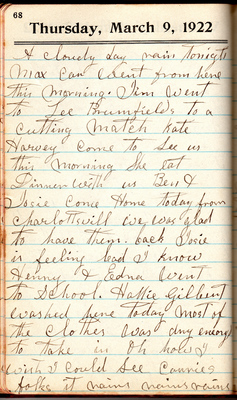 68
Thursday, March 9, 1922
A cloudy day rain tonight
Max Carr went from here
this morning. Jim went
to Lee Brumfields to a
cutting Match Kate
Harvey come to see us
this morning she eat
Dinner with us Ben &
Josie come Home today from
Charlottsvill we was glad
to have them back Josie
is feeling bad I know
Henny & Edna went
to School. Hattie Gilbert
washed here today most of
the clothes was dry enough
to take in Oh how I
wish I could see Connies
folks it rains rains rains